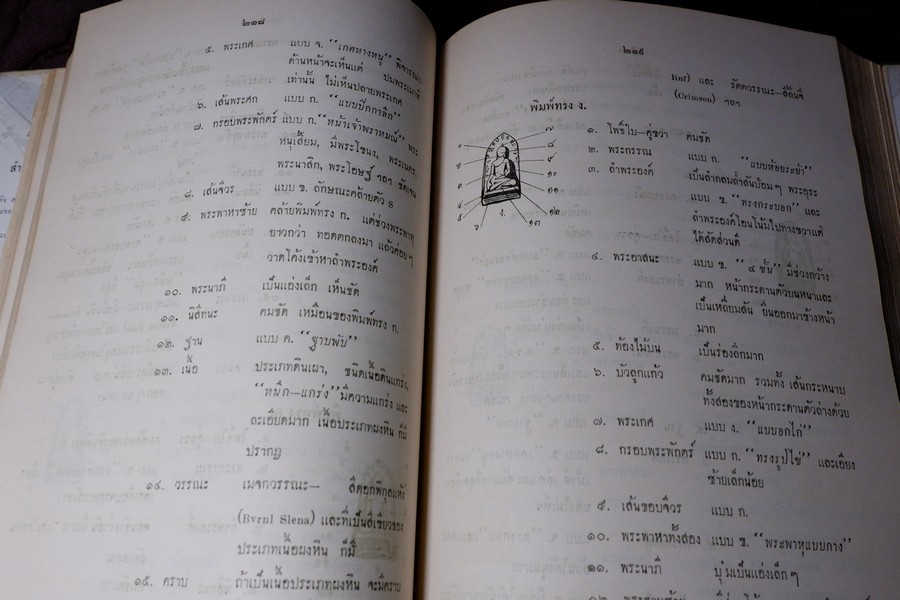 ๒๑๘
๕. พระเกศ แบบ จ. “เกศหางหนู” พิจารณา
ด้านหน้าจะเห็นแต่ ปมพระเมาลี
เท่านั้น ไม่เห็นปลายพระเกศ
๖. เส้นพระศก แบบ ก. “แบบปีกกาลึก”
๗. กรอบพระพักตร์ แบบ ก. “หน้าเจ้าพราหมณ์” พระ
หนุเสี้ยม, มีพระโขนง, พระเนตร,
พระนาสิก, พระโอษฐ์ ราง ชัดเจน
๘. เส้นจีวร แบบ ข. ลักษณะคล้ายตัว S
๙. พระพาหาซ้าย คล้ายพิมพ์ทรง ก. แต่ช่วงพระพาหุ
ยาวกว่า ทอดตกลงมา แล้วค่อยๆ
วาดโค้งเข้าหาลำพระองค์
๑๐. พระนาภี เป็นแอ่งเล็ก เห็นชัด
๑๑. นิสีทนะ คมชัด เหมือนของพิมพ์ทรง ก.
๑๒. ฐาน แบบ ค. “ฐานพับ”
๑๓. เนื้อ ประเภทดินเผา, ชนิดเนื้อดินแกร่ง,
“หนึก—แกร่ง” มีความแกร่ง และ
ละเอียดมาก เนื้อประเภทผงหิน ก็มี
ปรากฏ
๑๔. วรรณะ เมจกวรรณะ— สีดอกพิกุลแห้ง
(Bvrnl Slena) และที่เป็นสีเขียวของ
ประเภทเนื้อผงหิน ก็มี
๑๕. คราบ ถ้าเป็นเนื้อประเภทผงหิน จะมีคราบ
๒๑๙
lint) และ รัตตวรรณะ—สีลิ้นจี่
(Crimson) ราง
พิมพ์ทรง ง.
๑. โพธิ์ใบ—คู่ขวา คมชัด
๒. พระกรรณ แบบ ก. “แบบห้อยระย้า”
๓. ลำพระองค์ เป็นลำกลมล่ำสันป้อมๆ พระอุระ
แบบ ข. “ทรงกระบอก” และ
ลำพระองค์โอนโน้มไปทางขวาแต่
ได้สัดส่วนดี
๔. พระอาสนะ แบบ ข. “๔ ชั้น” มีช่วงกว้าง
มาก หน้ากระดานตัวบนหนาและ
เป็นเหลี่ยมสัน ยื่นออกมาข้างหน้า
มาก
๕. ท้องไม้บน เป็นร่องลึกมาก
๖. บัวลูกแก้ว คมชัดมาก รวมทั้ง เส้นกระหนาบ
ทั้งสองของหน้ากระดานตัวล่างด้วย
๗. พระเกศ แบบ ง. “แบบอกไก่”
๘. กรอบพระพักตร์ แบบ ก. “ทรงรูปไข่” และเอียง
ซ้ายเล็กน้อย
๙. เส้นขอบจีวร แบบ ก.
๑๐. พระพาหาทั้งสอง แบบ ข. “พระพาหุแบบกาง”
๑๑. พระนาภี บุ๋มเป็นแอ่งเล็กๆ